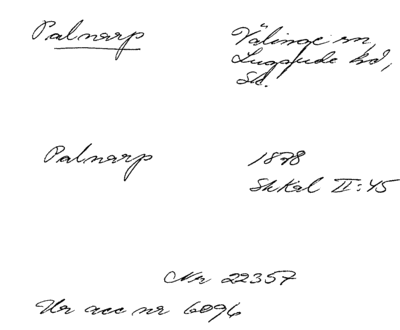 Palnarp
Välinge sn,
Luggude hd,
Sk.
Palnarp
1878
SkKal II:45
Nr 22357
Ur acc nr 6096